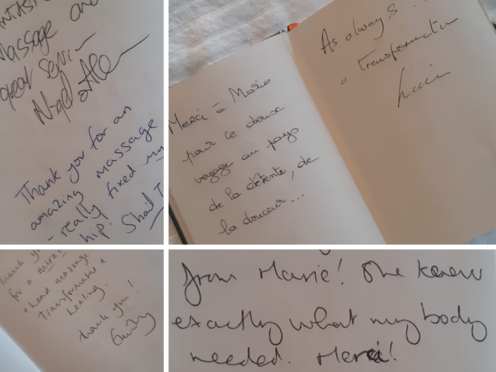 massage and
great serv
Thank you for an
amazing massage
- really fixed my
hip.
Merci à Marie
pour ce doux
voyage au pays
de la détente, de
la douceur...
As always
a transformation
thank you
for a
+ head massage
healing.
thank you!
from Marie! She knew
exactly what my body
needed. Merci!